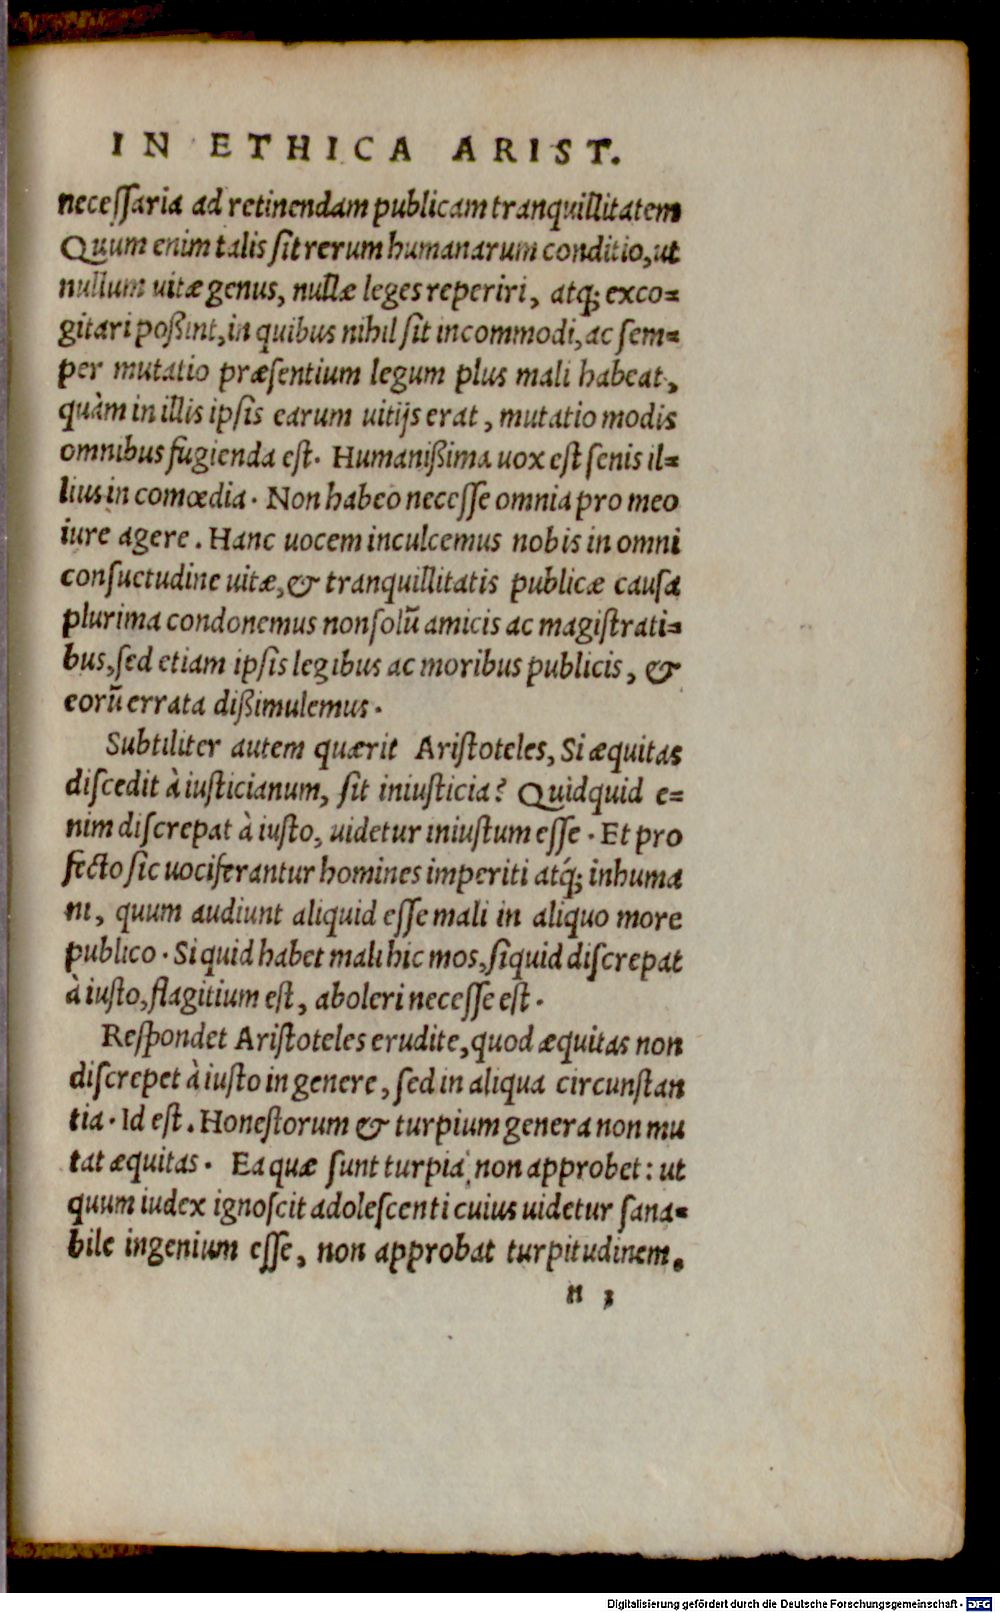 IN ETHICA ARIST.
necessaria ad retinendam publicam tranquillitatem
Quum enim talis sit rerum humanarum conditio, ut
nullum uitæ genus, nullæ leges reperiri, atq; exco=
gitari poßint, in quibus nihil sit incommodi, ac sem=
per mutatio præsentium legum plus mali habeat,
quàm in illis ipsis earum uitijs erat, mutatio modis
omnibus fugienda est. Humanißima uox est senis il=
lius in comœdia. Non habeo necesse omnia pro meo
iure agere. Hanc uocem inculcemus nobis in omni
consuetudine uitæ, & tranquillitatis publicæ causa
plurima condonemus non solũ amicis ac magistrati=
bus, sed etiam ipsis legibus ac moribus publicis, &
eorũ errata dißimulemus.
Subtiliter autem quærit Aristoteles, Si æquitas
discedit à iusticia num, sit iniusticia? Quidquid e=
nim discrepat à iusto, uidetur iniustum esse. Et pro
fecto sic uociferantur homines imperiti atq́; inhuma
ni, quum audiunt aliquid esse mali in aliquo more
publico. Si quid habet mali hic mos, si quid discrepat
à iusto, flagitium est, aboleri necesse est.
Respondet Aristoteles erudite, quod æquitas non
discrepet à iusto in genere, sed in aliqua circunstan
tia. Id est. Honestorum & turpium genera non mu
tat æquitas. Ea quæ sunt turpia non approbet: ut
quum iudex ignoscit adolescenti cuius uidetur sana=
bile ingenium esse, non approbat turpitudinem.
n 3
Digitalisierung gefördert durch die Deutsche Forschungsgemeinschaft - DFG